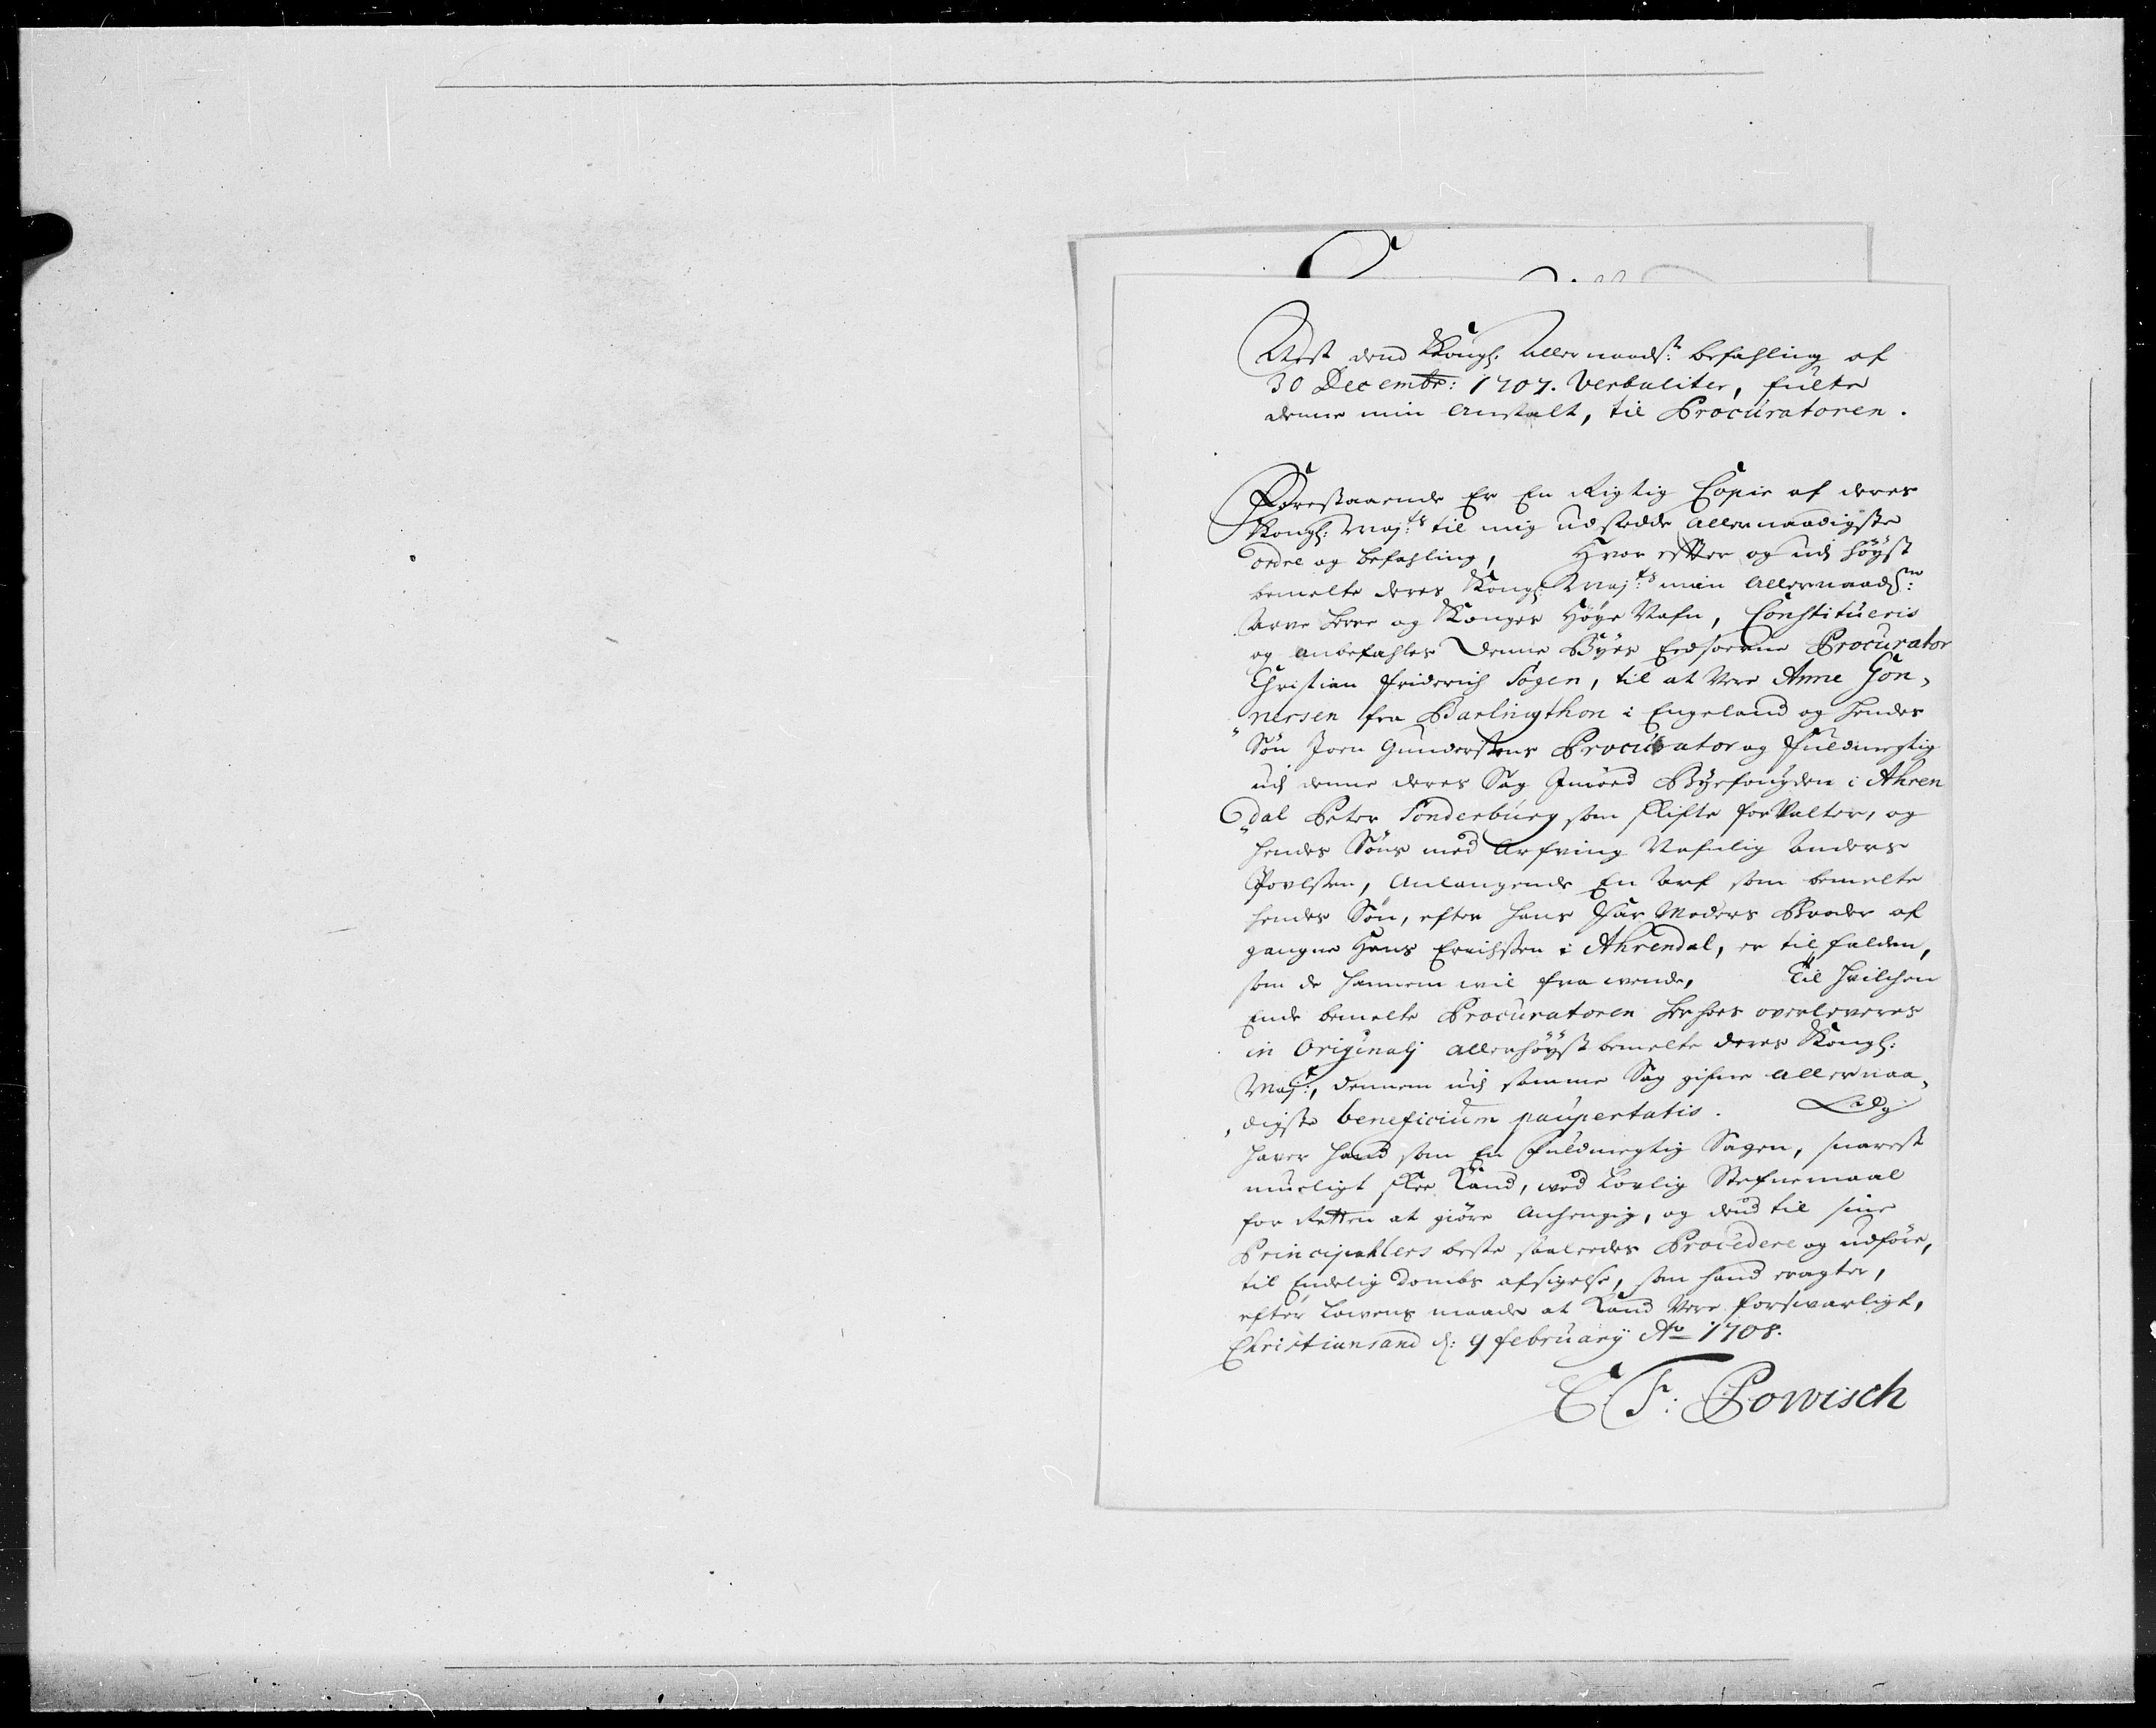 Nest dend Kongl. Allernaads: befahling af
30 Decembr: 1707. Verbaliter, fulte
denne min Anstalt, til Procuratoren.
Forestaaende Er En Rigtig Copie af deres
Kongl: Maj:ts til mig udstedde allernaadigste
ordre og befahling, Hvor efter og udj höyst
bemelte deres Kongl: Maj:ts min Allernaads:
Arve Herre og Konges Höye Nafn, Constitueris
og anbefahles denne Byes Eedsoerne Procurator
Christian Friderich Togen, til at Vere Anne Gon,
nersen fra Barlingthon i Engeland og hendes
Sön Joen Gundersens Procurator og fuldmegtig
udj denne deres Sag Jmoed Byefougden i Ahren
dal Peter Tonderburg som skifte forValter, og
hendes Söns med Arfving Nafnlig Anders
Povlssen, Anlangende En Arf som bemelte
hendes Sön, efter hans Far Moders Broder af
gangne Hans Erichssen i Ahrendal, er til falden,
som de hannem wil fra wende, Til hvilchen
Ende bemelte Procuratoren her hos overleveres
in Originalj allerhöyst bemelte deres Kongl:
Maj:t, dennem udj samme Sag gifne allernaa,
digste beneficium paupertatis. Og
haver hand som En fuldmegtig Sagen, snarest
mueligt skee Kand, wed Lovlig Stefnemaal
for Retten at giöre Anhengig, og dend til sine
Principahlers beste saaledes Procedere og udföre,
til Endelig dombs afsigelse, som hand eragter,
efter Lowens maade at Kand Vere forswarligt,
Christiansand d: 9 february Ao 1708.
C. F: Powisch